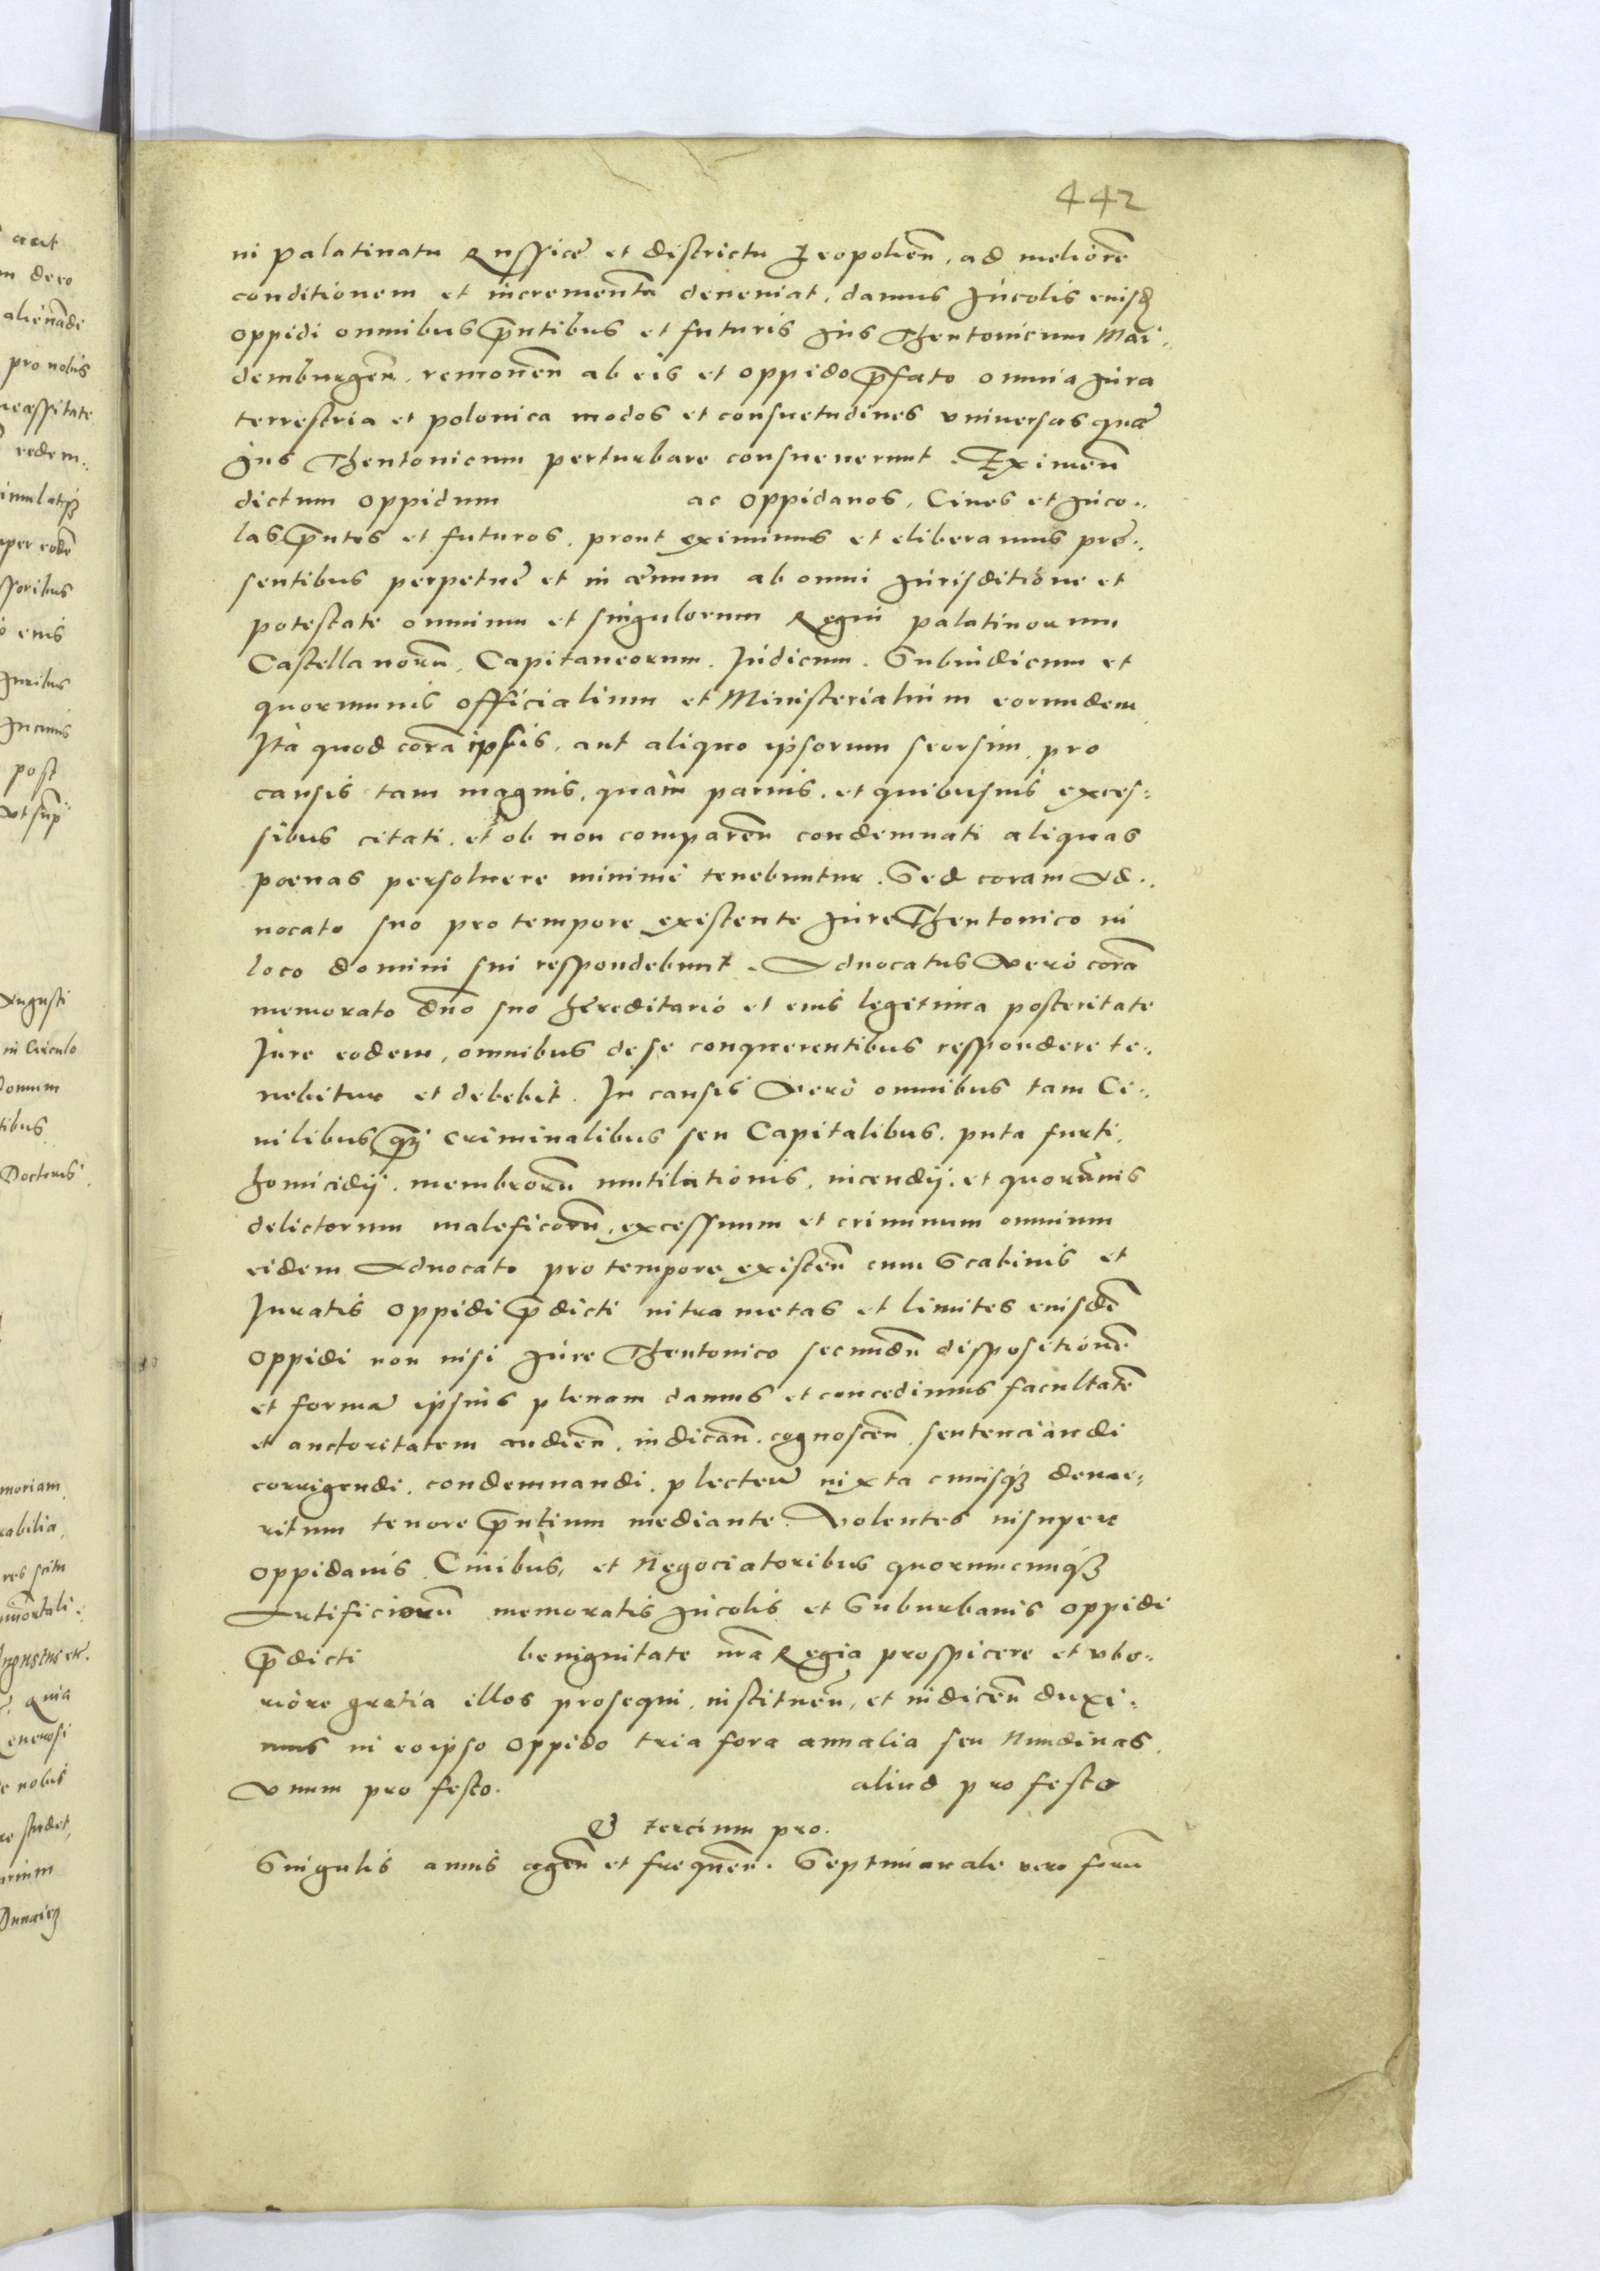 442
in palatinatu Russiae et districtu Leopolien̄. ad meliorē
conditionem et incrementa deueniat, damus Incolis eiusd̄
oppidi omnibus p̄ntibus et futuris Ius Theutonicum Mai„
demburgeñ. remoueñ ab eis et oppido p̄fato omnia Iura
terrestria et polonica modos et consuetudines vniuersas quae
Ius Theutonicum perturbare consueuerunt. Eximeñ
dictum oppidum ac oppidanos, Ciues et Inco„
las p̄ntes et futuros. prout eximimus et eliberamus prae„
sentibus perpetue et in aeuum ab omni Iurisditione et
potestate omnium et singulorum Regni palatinorum
Castellanorū, Capitaneorum. Iudicum. Subiudicum et
quorumuis officialium et Ministerialium eorundem
Ita quod corā ipsis, aut aliquo ipsorum seorsim, pro
causis tam magnis, quàm paruis, et quibusuis exces„
sibus citati, et ob non compareñ condemnati aliquas
poenas persoluere minimè tenebuntur. Sed coram Ad„
uocato suo pro tempore existente Iure Theutonico in
loco domini sui respondebunt. Aduocatus Verò corā
memorato dn̄o suo hereditario et eius legitima posteritate
Iure eodem, omnibus de se conquerentibus respondere te„
nebitur et debebit. In causis Verò omnibus tam Ci„
uilibus q̄ȝ criminalibus seu Capitalibus, puta furti,
homicidij. membrorū mutilationis, incendij. et quorūuis
delictorum maleficorū, excessuum et criminum omnium
eidem Aduocato pro tempore existeñ cum Scabinis et
Iuratis oppidi p̄dicti intra metas et limites eiusdē
oppidi non nisi Iure Theutonico secundū dispositionē
et formā ipsius plenam damus et concedimus facultatē
et auctoritatem audieñ. iudicañ. cognosceñ. sentenciandi
corrigendi. condemnandi. plectēd iuxta cuiusqȝ deme„
ritum tenore p̄ntium mediante. Volentes insuper
oppidanis Ciuibus, et Negociatoribus quorumcunqȝ
Artificiorū memoratis Incolis et Suburbanis oppidi
p̄dicti benignitate nr̄a Regia prospicere et vbe„
riore gratia illos prosequi, instituen̄, et indiceñ duxi„
mus in eo ipso oppido tria fora annalia seu Nundinas
Vnum pro festo. aliud pro festo
Et tercium pro.
Singulis annis ageñ et frequeñ. Septimanale vero forū